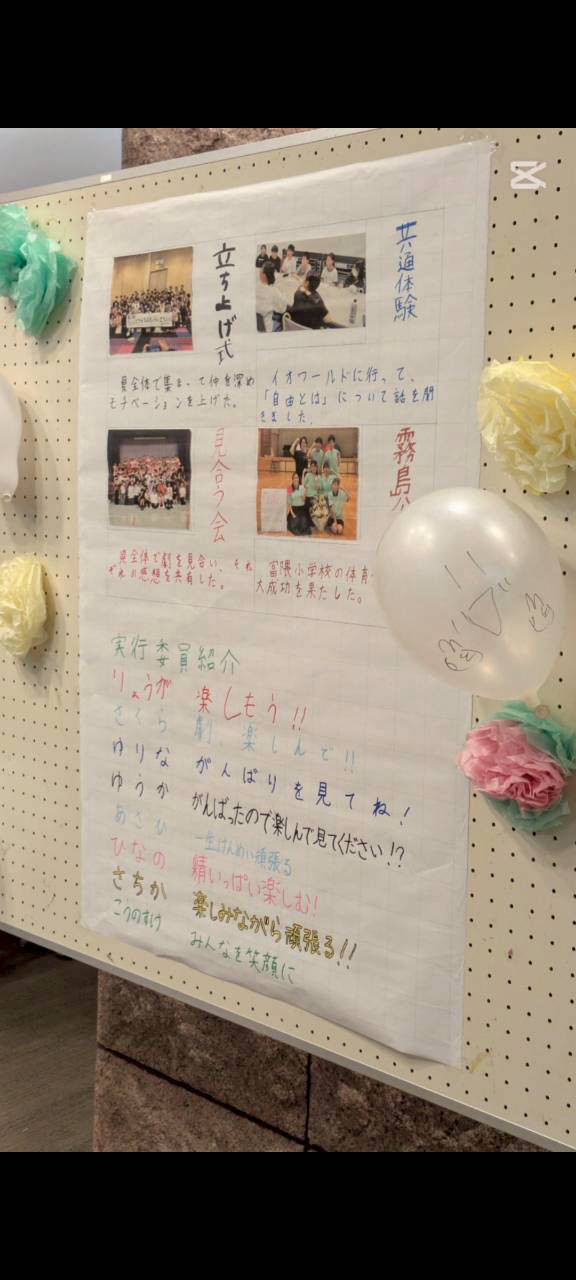 共通体験
イオワールドに行って、
「自由とは」について話を聞
きました。
立ち上げ式
県全体で集まって仲を深め
モチベーションを上げた。
霧島公
富隈小学校の体育
大成功を果たした。
見合う会
県全体で劇を見合い、それ
ぞれの感想を共有した。
実行委員紹介
りょうが 楽しもう!!
さくら 劇、楽しんで!!
ゆりな がんばりを見てね!
ゆうか がんばったので楽しんで見てください!?
あさひ 一生けんめい頑張る
ひなの 精いっぱい楽しむ!
さちか 楽しみながら頑張る!!
こうのすけ みんなを笑顔に